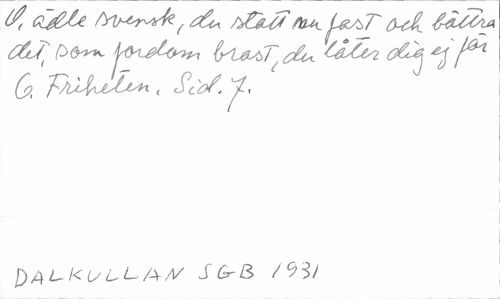 O, ädle svensk, du statt nu fast och bättra
det, som fordom brast, du låter dig ej för
6. Friheten. Sid. 7.
DALKULLAN SGB 1931